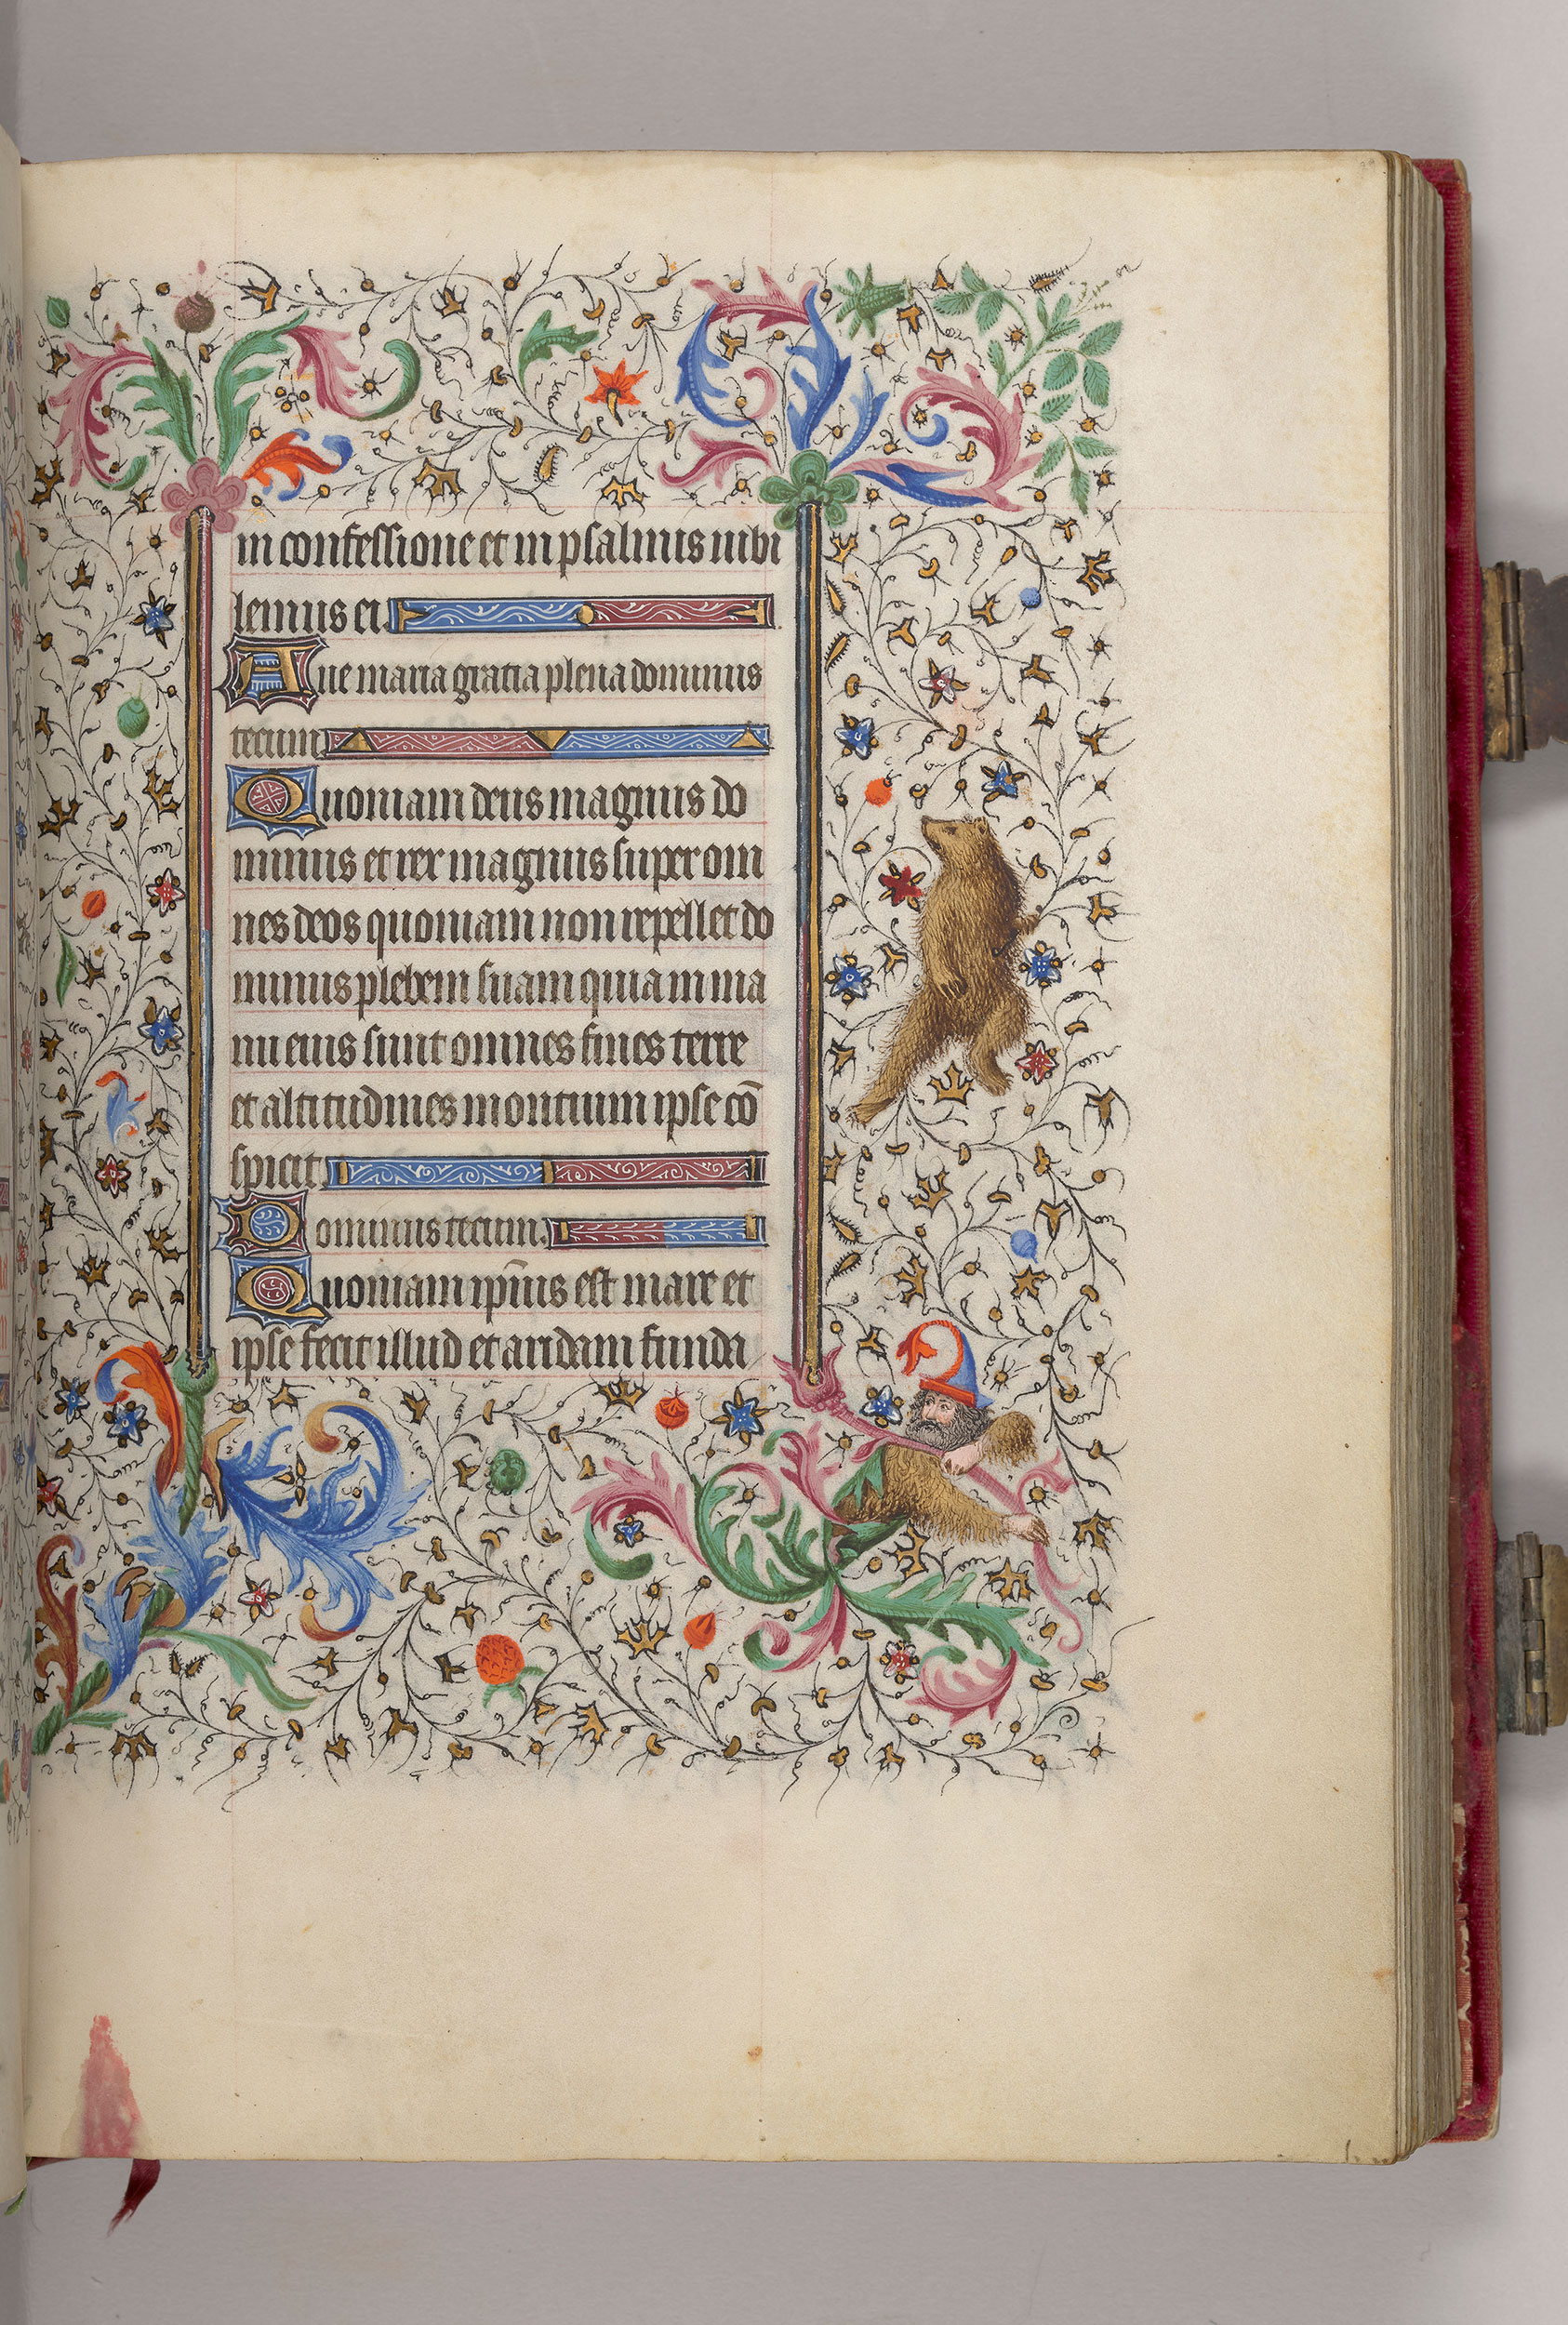 in confessione et in psalmis iubi
lemus ei.
Aue maria gratia plena dominus
tecum.
Quoniam deus magnus do
minus et rex magnus super om
nes deos quoniam non repellet do
minus plebem suam quia in ma
nu eius sunt omnes fines terre
et altitudines montium ipse cō
spicit.
Dominus tecum.
Quoniam ip̄ius est mare et
ipse fecit illud et aridam funda